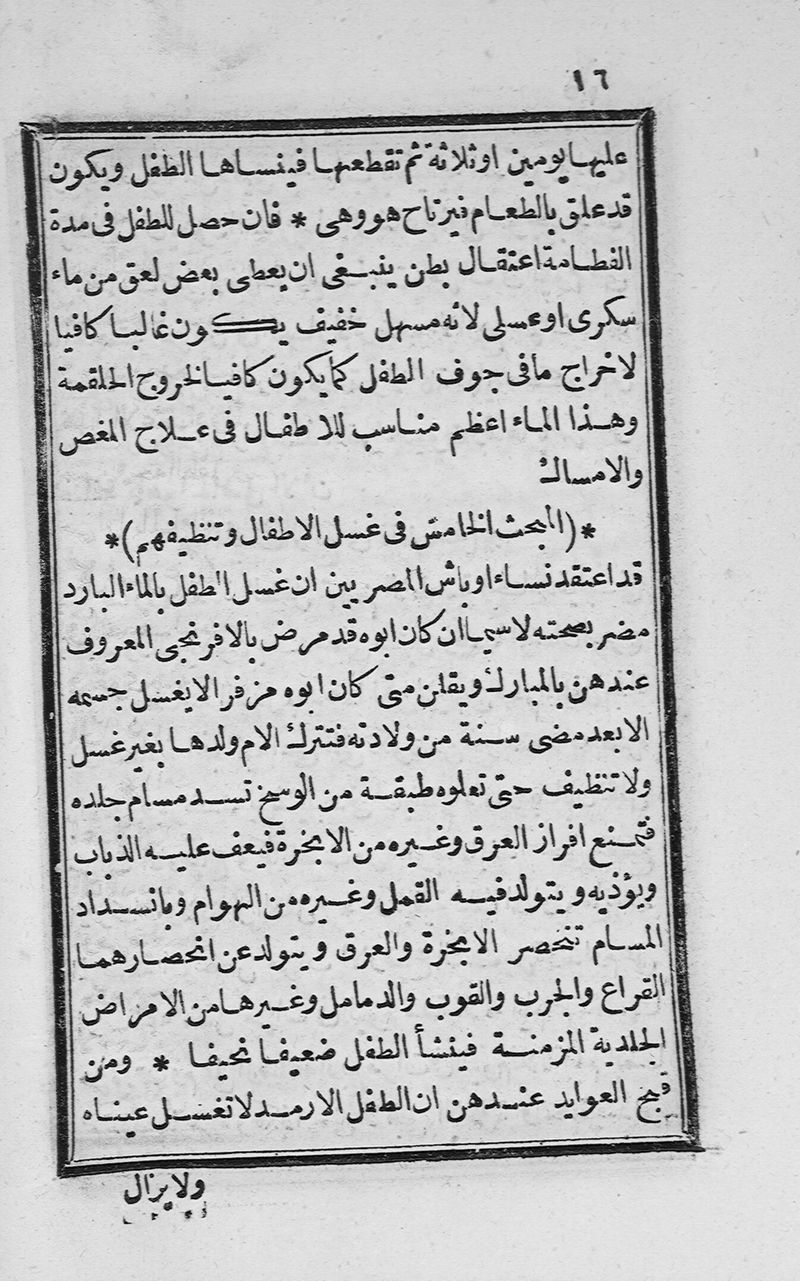 ١٦
عليها يومين او ثلاثة ثم تقطعها فينساها الطفل ويكون
قد علق بالطعام فيرتاح هو وهى * فان حصل للطفل فى مدة
الفطامة اعتقال بطن ينبغى ان يعطى بعض لعق من ماء
سكرى او عسلى لانه مسهل خفيف يكون غالبا كافيا
لاخراج ما فى جوف الطفل كما يكون كافيا لخروج الخلقمة
وهذا الماء اعظم مناسب للاطفال فى علاج المغص
والامساك
*(المبحث الخامس فى غسل الاطفال وتنظيفهم)*
قد اعتقد نساء اوباش المصريين ان غسل الطفل بالماء البارد
مضر بصحته لاسيما ان كان ابوه قد مرض بالافرنجى المعروف
عندهن بالمبارك ويقلن متى كان ابوه مزفر الا يغسل جسمه
الا بعد مضى سنة من ولادته فتترك الام ولدها بغير غسل
ولا تنظيف حتى تعلوه طبقة من الوسخ تسد مسام جلده
فتمنع افراز العرق وغيره من الابخرة فيعف عليه الذباب
ويؤذيه ويتولد فيه القمل وغيره من الهوام وبانسداد
المسام تنحصر الابخرة والعرق ويتولد عن انحصارهما
القراع والجرب والقوب والدمامل وغيرها من الامراض
الجلدية المزمنة فينشأ الطفل ضعيفا نحيفا * ومن
قبح العوايد عندهن ان الطفل الارمد لا تغسل عيناه
ولا يزال